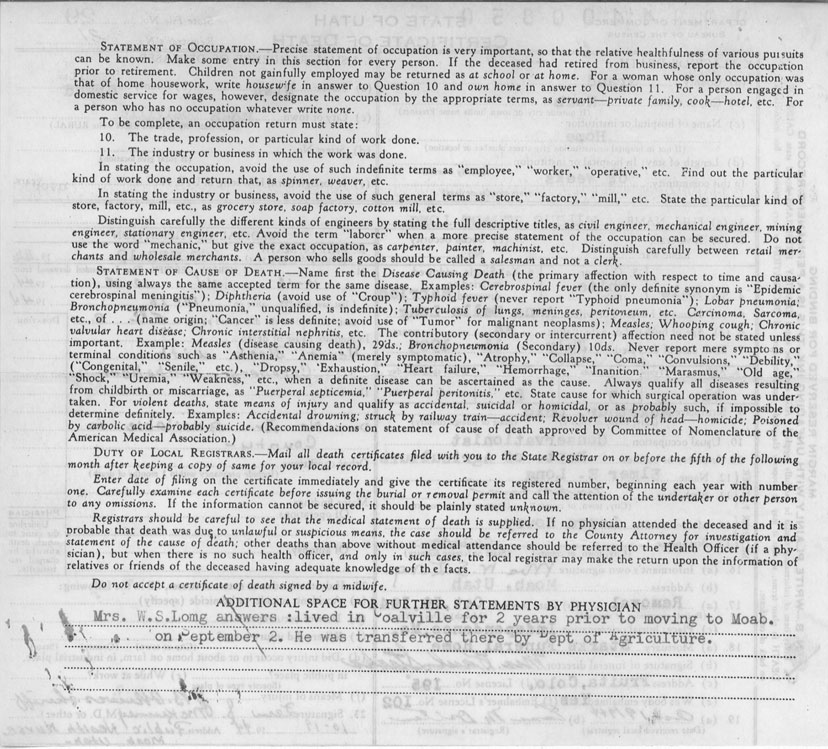 STATEMENT OF OCCUPATION.—Precise statement of occupation is very important, so that the relative healthfulness of various pursuits
can be known. Make some entry in this section for every person. If the deceased had retired from business, report the occupation
prior to retirement. Children not gainfully employed may be returned as at school or at home. For a woman whose only occupation was
that of home housework, write housewife in answer to Question 10 and own home in answer to Question 11. For a person engaged in
domestic service for wages, however, designate the occupation by the appropriate terms, as servant—private family, cook—hotel, etc. For
a person who has no occupation whatever write none.
To be complete, an occupation return must state:
10. The trade, profession, or particular kind of work done.
11. The industry or business in which the work was done.
In stating the occupation, avoid the use of such indefinite terms as "employee," "worker," "operative," etc. Find out the particular
kind of work done and return that, as spinner, weaver, etc.
In stating the industry or business, avoid the use of such general terms as "store," "factory," "mill," etc. State the particular kind of
store, factory, mill, etc., as grocery store, soap factory, cotton mill, etc.
Distinguish carefully the different kinds of engineers by stating the full descriptive titles, as civil engineer, mechanical engineer, mining
engineer, stationary engineer, etc. Avoid the term "laborer" when a more precise statement of the occupation can be secured. Do not
use the word "mechanic," but give the exact occupation, as carpenter, painter, machinist, etc. Distinguish carefully between retail mer-
chants and wholesale merchants. A person who sells goods should be called a salesman and not a clerk.
STATEMENT OF CAUSE OF DEATH.—Name first the Disease Causing Death (the primary affection with respect to time and causa-
tion), using always the same accepted term for the same disease. Examples: Cerebrospinal fever (the only definite synonym is "Epidemic
cerebrospinal meningitis"); Diphtheria (avoid use of "Croup"); Typhoid fever (never report "Typhoid pneumonia"); Lobar pneumonia;
Bronchopneumonia ("Pneumonia," unqualified, is indefinite); Tuberculosis of lungs, meninges, peritoneum, etc. Carcinoma, Sarcoma,
etc., of . . . (name origin; "Cancer" is less definite; avoid use of "Tumor" for malignant neoplasms); Measles; Whooping cough; Chronic
valvular heart disease; Chronic interstitial nephritis, etc. The contributory (secondary or intercurrent) affection need not be stated unless
important. Example: Measles (disease causing death), 29ds.; Bronchopneumonia (Secondary) 10ds. Never report mere symptoms or
terminal conditions such as "Asthenia," "Anemia" (merely symptomatic), "Atrophy," "Collapse," "Coma," "Convulsions," "Debility,"
("Congenital," "Senile," etc.), "Dropsy," 'Exhaustion," "Heart failure," "Hemorrhage," "Inanition," "Marasmus," "Old age,"
"Shock," "Uremia," "Weakness," etc., when a definite disease can be ascertained as the cause. Always qualify all diseases resulting
from childbirth or miscarriage, as "Puerperal septicemia," "Puerperal peritonitis," etc. State cause for which surgical operation was under-
taken. For violent deaths, state means of injury and qualify as accidental, suicidal or homicidal, or as probably such, if impossible to
determine definitely. Examples: Accidental drowning; struck by railway train—accident; Revolver wound of head—homicide; Poisoned
by carbolic acid—probably suicide. (Recommendations on statement of cause of death approved by Committee of Nomenclature of the
American Medical Association.)
DUTY OF LOCAL REGISTRARS.—Mail all death certificates filed with you to the State Registrar on or before the fifth of the following
month after keeping a copy of same for your local record.
Enter date of filing on the certificate immediately and give the certificate its registered number, beginning each year with number
one. Carefully examine each certificate before issuing the burial or removal permit and call the attention of the undertaker or other person
to any omissions. If the information cannot be secured, it should be plainly stated unknown.
Registrars should be careful to see that the medical statement of death is supplied. If no physician attended the deceased and it is
probable that death was due to unlawful or suspicious means, the case should be referred to the County Attorney for investigation and
statement of the cause of death; other deaths than above without medical attendance should be referred to the Health Officer (if a phy-
sician), but when there is no such health officer, and only in such cases, the local registrar may make the return upon the information of
relatives or friends of the deceased having adequate knowledge of the facts.
Do not accept a certificate of death signed by a midwife.
ADDITIONAL SPACE FOR FURTHER STATEMENTS BY PHYSICIAN
Mrs. W.S.Lomg answers :lived in Coalville for 2 years prior to moving to Moab.
on September 2. He was transferred there by Dept of Agriculture.